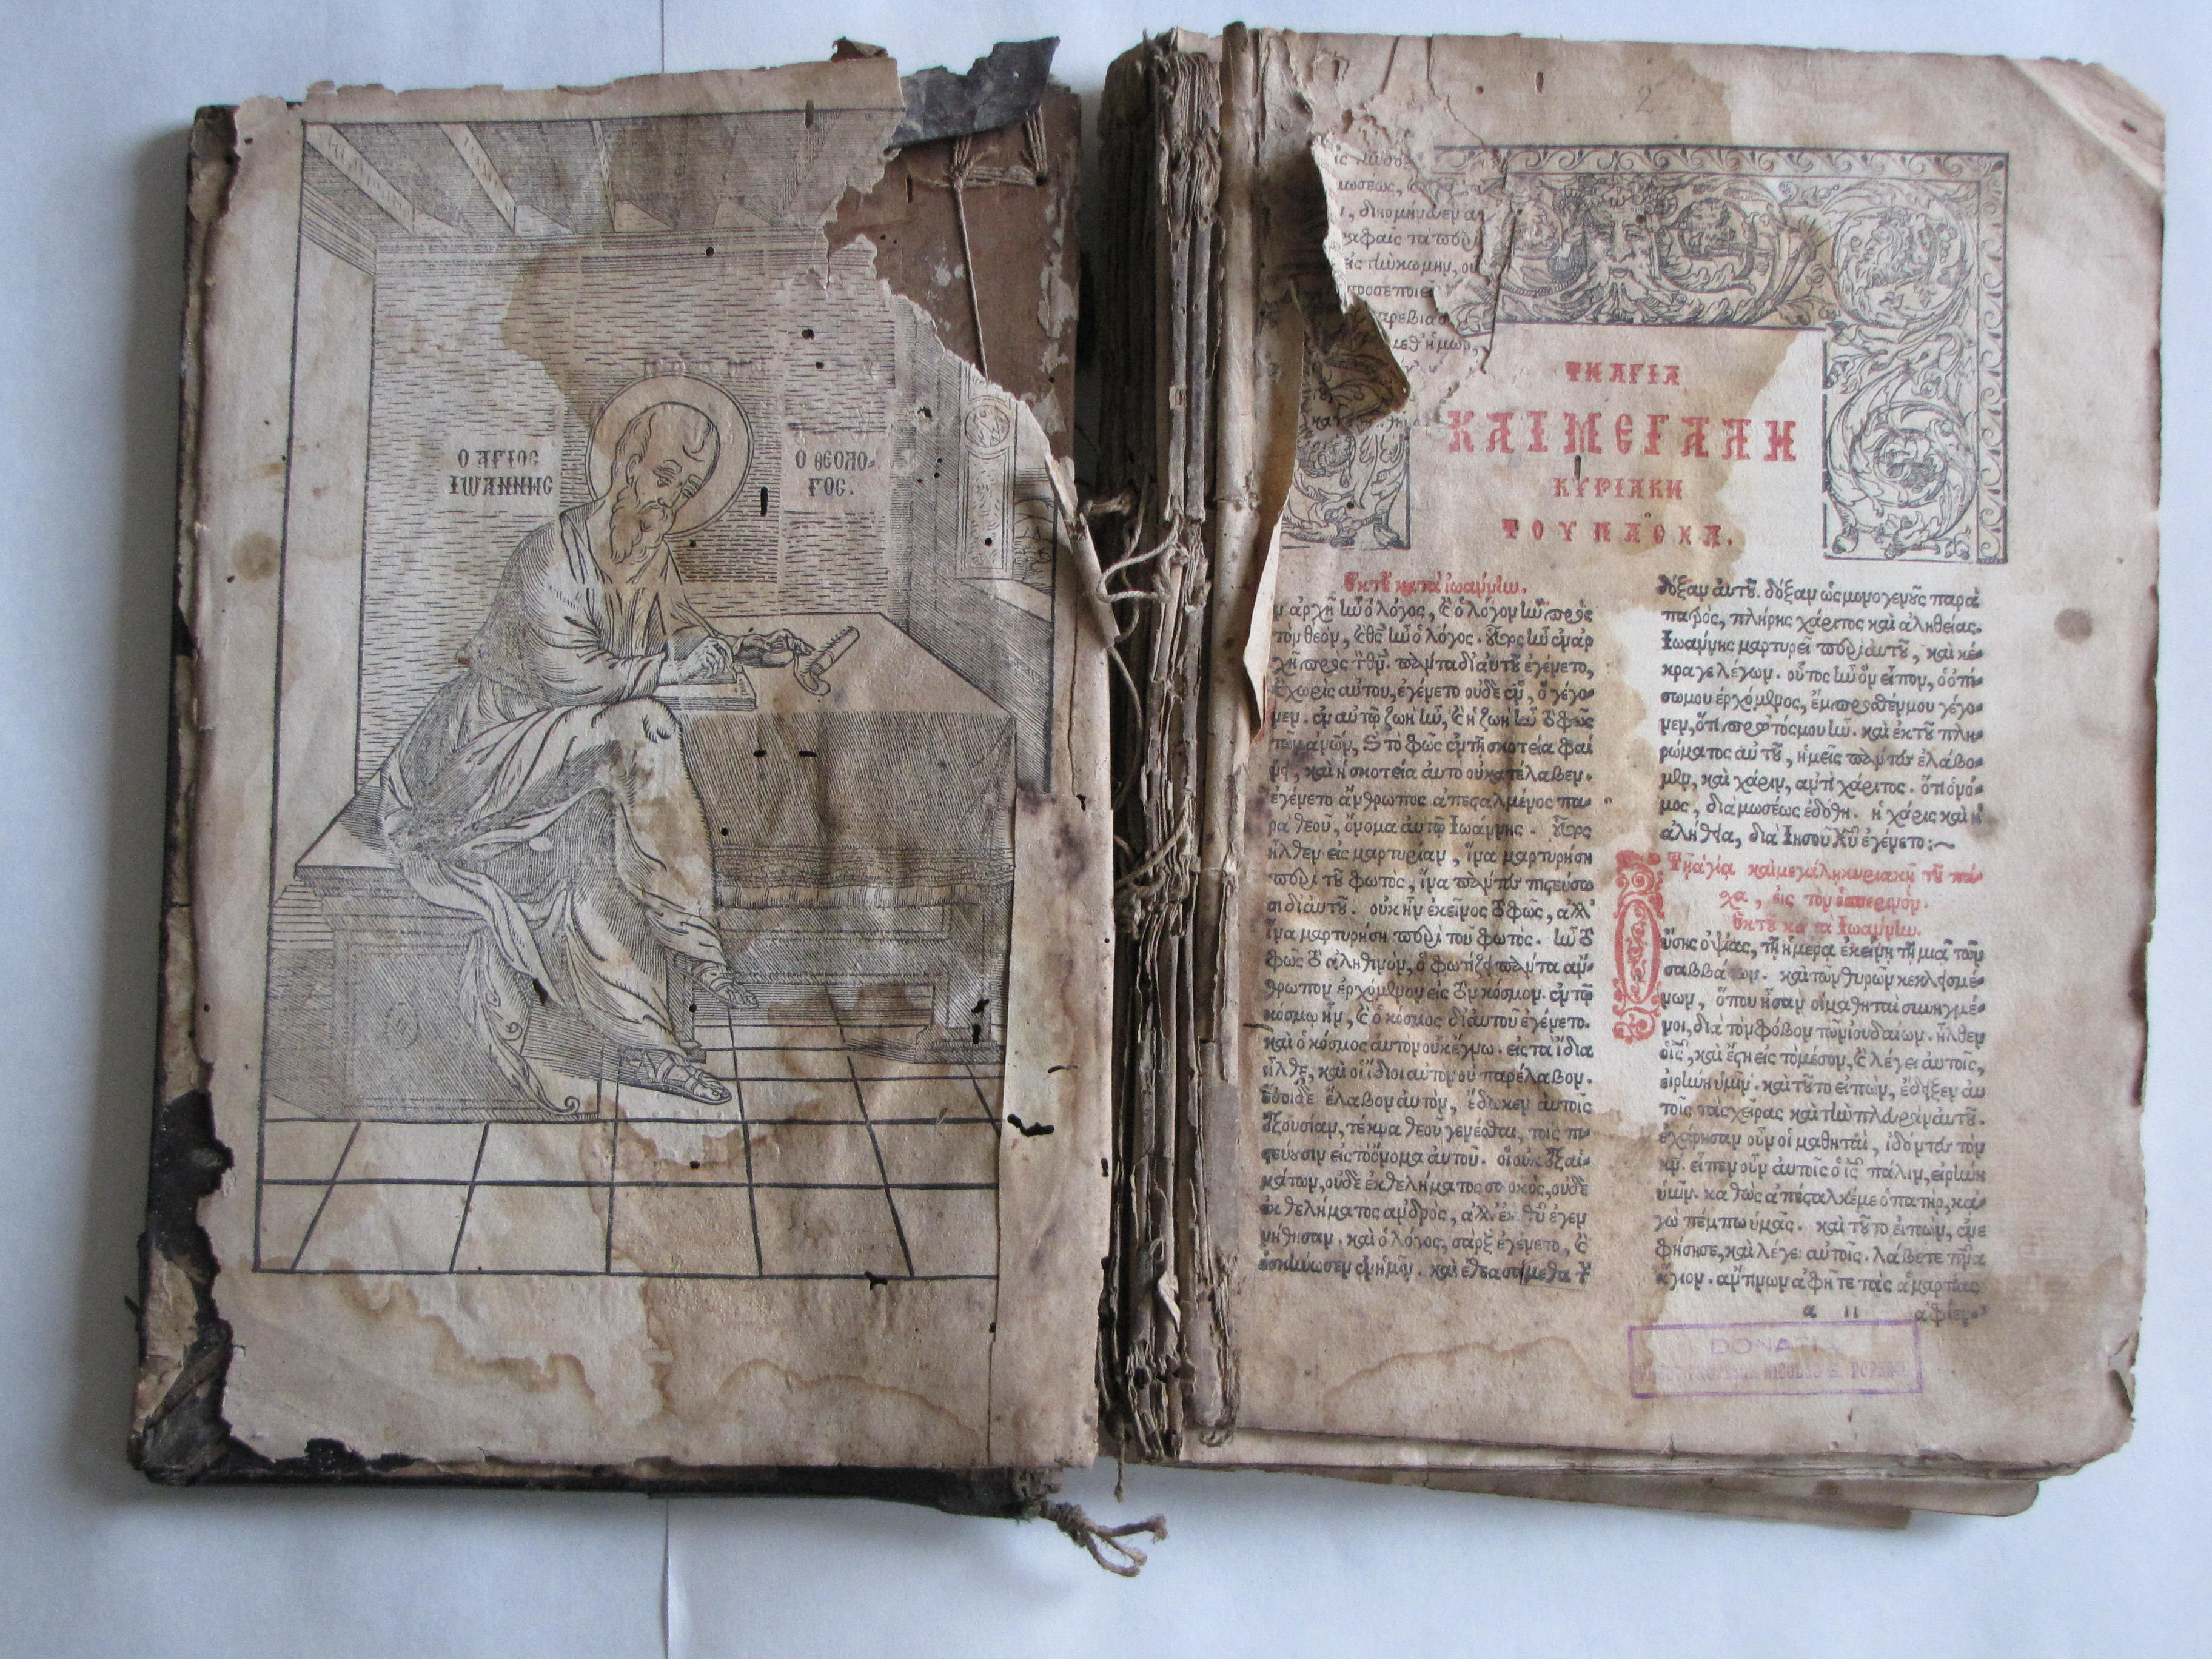 Ο ΑΓΙΟΣ
ΙΩΑΝΝΗΣ
Ο ΘΕΟΛΟ-
ΓΟΣ.
2
ΤΗ ΑΓΙΑ
ΚΑΙ ΜΕΓΑΛΗ
ΚΥΡΙΑΚΗ
ΤΟΥ ΠΑΣΧΑ.
Ἐκ τȣ͂ κατὰ ἰωάννην.
ν ἀρχῇ ἦν ὁ λόγος, ϗ ὁ λόγος ἦν πρὸς
τὸν θεὸν, ϗ θς͂ ἦν ὁ λόγος. οὗτος ἦν ἐν ἀρ
χῇ πρὸς τ θν͂. πάντα δι αὐτȣ͂ ἐγένετο,
ϗ χωρὶς αὐτου, ἐγένετο οὐδὲ ἓν, ὃ γέγο-
νεν. ἐν αὐτῷ ζωὴ ἦν, ϗ ἡ ζωὴ ἦν τὸ φῶς
τῶν ἀνῶν, ϗ το φῶς ἐν τῇ σκοτεία φαί
νει, καὶ ἡ σκοτεία ἀυτο οὐ κατέλαβεν.
ἐγένετο ἄνθρωπος ἀπεσταλμένος πα-
ρὰ θεοῦ, ὄνομα ἀυτῷ Ἰωάννης. οὗτος
ἦλθεν εἰς μαρτυρίαν, ἵνα μαρτυρήση
περὶ τȣ͂ φωτὸς, ἵνα πάντες πιςεύσω
σι δι ἀυτȣ͂. οὐκ ἦν ἐκεῖνος τὸ φῶς, ἀλλ'
ἵνα μαρτυρήση περὶ του φωτὸς. ἦν τὸ
φῶς τὸ ἀληθινὸν, ὃ φωτίζει πάντα ἄν-
θρωπον ἐρχόμενον εἰς τὸν κόσμον. ἐν τῷ
κόσμω ἦν, ϗ ὁ κόσμος δι ἀυτοῦ ἐγένετο.
καὶ ὁ κόσμος ἀυτὸν οὐκ ἔγνω. εἰς τὰ ἴδια
ἦλθε, καὶ οἱ ἴδιοι αὐτὸν οὐ παρέλαβον.
ὅσοι δὲ ἔλαβον ἀυτὸν, ἔδωκεν ἀυτοῖς
ἐξουσίαν, τέκνα θεου γενέσθαι, τοῖς πι-
ςεύουσιν εἰς τὸ ὄνομα ἀυτοῦ. οἳ οὐκ ἐξ αἱ-
μάτων, οὐδὲ ἐκ θελήματος σαρκὸς, ουδὲ
ἐκ θελήματος ἀνδρὸς, ἀλλ' ἐκ θȣ͂ ἐγεν
νήθησαν. καὶ ὁ λόγος, σὰρξ ἐγένετο, ϗ
ἐσκήνωσεν ἐν ἡμῖν. καὶ ἐθεασάμεθα τ
δόξαν ἀυτȣ͂. δόξαν ὡς μονογενȣ͂ς παρὰ
πατρὸς, πλήρης χάριτος καὶ ἀληθείας.
Ἰωάννης μαρτυρεῖ περὶ ἀυτȣ͂, καὶ κέ-
κραγε λέγων. οὗτος ἦν ὃν εἶπον, ὁ ὀπί-
σω μου ἐρχόμενος, ἔμπροσθέν μου γέγο-
νεν, ὅτι πρῶτός μου ἦν. καὶ ἐκ τȣ͂ πλη-
ρώματος ἀυτȣ͂, ἡμεῖς πάντες ἐλάβο-
μεν, καὶ χάριν, ἀντὶ χάριτος. ὅτι ὁ νό-
μος, διὰ μωσέως ἐδόθη. ἡ χάρις καὶ ἡ
ἀλήθεια, δια Ἰησοῦ Χȣ͂ ἐγένετο:~
Τῇ ἁγία καὶ μεγάλη κυριακῇ τȣ͂ πά-
χα, εἰς τὸν ἑσπερινόν.
Ἐκ τȣ͂ κατὰ Ἰωάννην.
Οὔσης ὀψίας, τῇ ἡμέρα ἐκείνη τῇ μιᾷ τῶν
σαββάτων. καὶ τῶν θυρῶν κεκλεισμέ-
νων, ὅπου ἦσαν οἱ μαθηταὶ συνηγμέ-
νοι, διὰ τὸν φόβον τῶν ἰουδαίων. ἦλθεν
ὁ ἰς͂, καὶ ἔςη εἰς τὸ μέσον, ϗ λέγει ἀυτοῖς,
εἰρήνη ὑμῖν. καὶ τȣ͂το εἰπὼν, ἔδειξεν ἀυ
τοῖς τὰς χεῖρας καὶ τὴν πλευρὰν ἀυτȣ͂.
ἐχάρησαν οὖν οἱ μαθηταὶ, ἰδόντες τὸν
κν͂. εἶπεν οὖν ἀυτοῖς ὁ ἰς͂ πάλιν, εἰρήνη
ὑμῖν. καθὼς ἀπέςαλκέ με ὁ πατὴρ, κᾀ-
γὼ πέμπω ὑμᾶς. καὶ τȣ͂το εἰπὼν, ἐνε
φύσησε, καὶ λέγει αὐτοῖς. λάβετε πνεῦμα
ἅγιον. ἄν τινων ἀφῆτε τὰς ἁμαρτίας
α ιι ἀφίεν-
DONATIA
NICOLAE